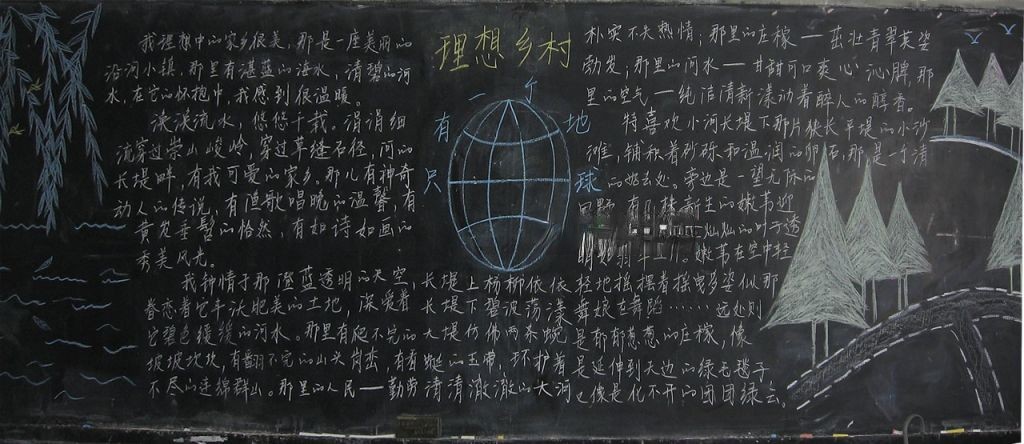 理想乡村
只有一个地球
我理想中的家乡很美，那是一座美丽的
沿河小镇，那里有湛蓝的海水，清碧的河
水，在它的怀抱中，我感到很温暖。
流水，悠悠千载。涓涓细
流穿过崇山峻岭，穿过草缝石径，河的
长堤畔，有我可爱的家乡。那儿有神奇
动人的传说，有渔歌唱晚的温馨，有
黄发垂髫的怡然，有如诗如画的
秀美风光。
我钟情于那澄蓝透明的天空，
眷恋着它丰沃肥美的土地，深爱着
它碧色缓缓的河水。那里有爬不完的
坡坡坎坎，有翻不完的山头岗峦，有看
不尽的连绵群山。那里的人民——勤劳
朴实不失热情；那里的庄稼——茁壮青翠英姿
勃发；那里的河水——甘甜可口爽心沁脾，那
里的空气——纯洁清新漾动着醉人的醇香。
特喜欢小河长堤下那片狭长平堤的小沙
滩，铺积着砂砾和温润的卵石，那是一个清
的好去处。旁边是一望无际的
田野，有几株新生的嫩苇迎
的叶子透
嫩苇在空中轻
长堤上杨柳依依，轻地摇摆着摇曳多姿似那
长堤下碧波荡漾，舞娘在舞蹈……远处则
大堤仿佛两条蜿 是郁郁葱葱的庄稼，像
蜒的玉带，环护着 是延伸到天边的绿色毯子
清清澈澈的大河 也像是化不开的团团绿云。